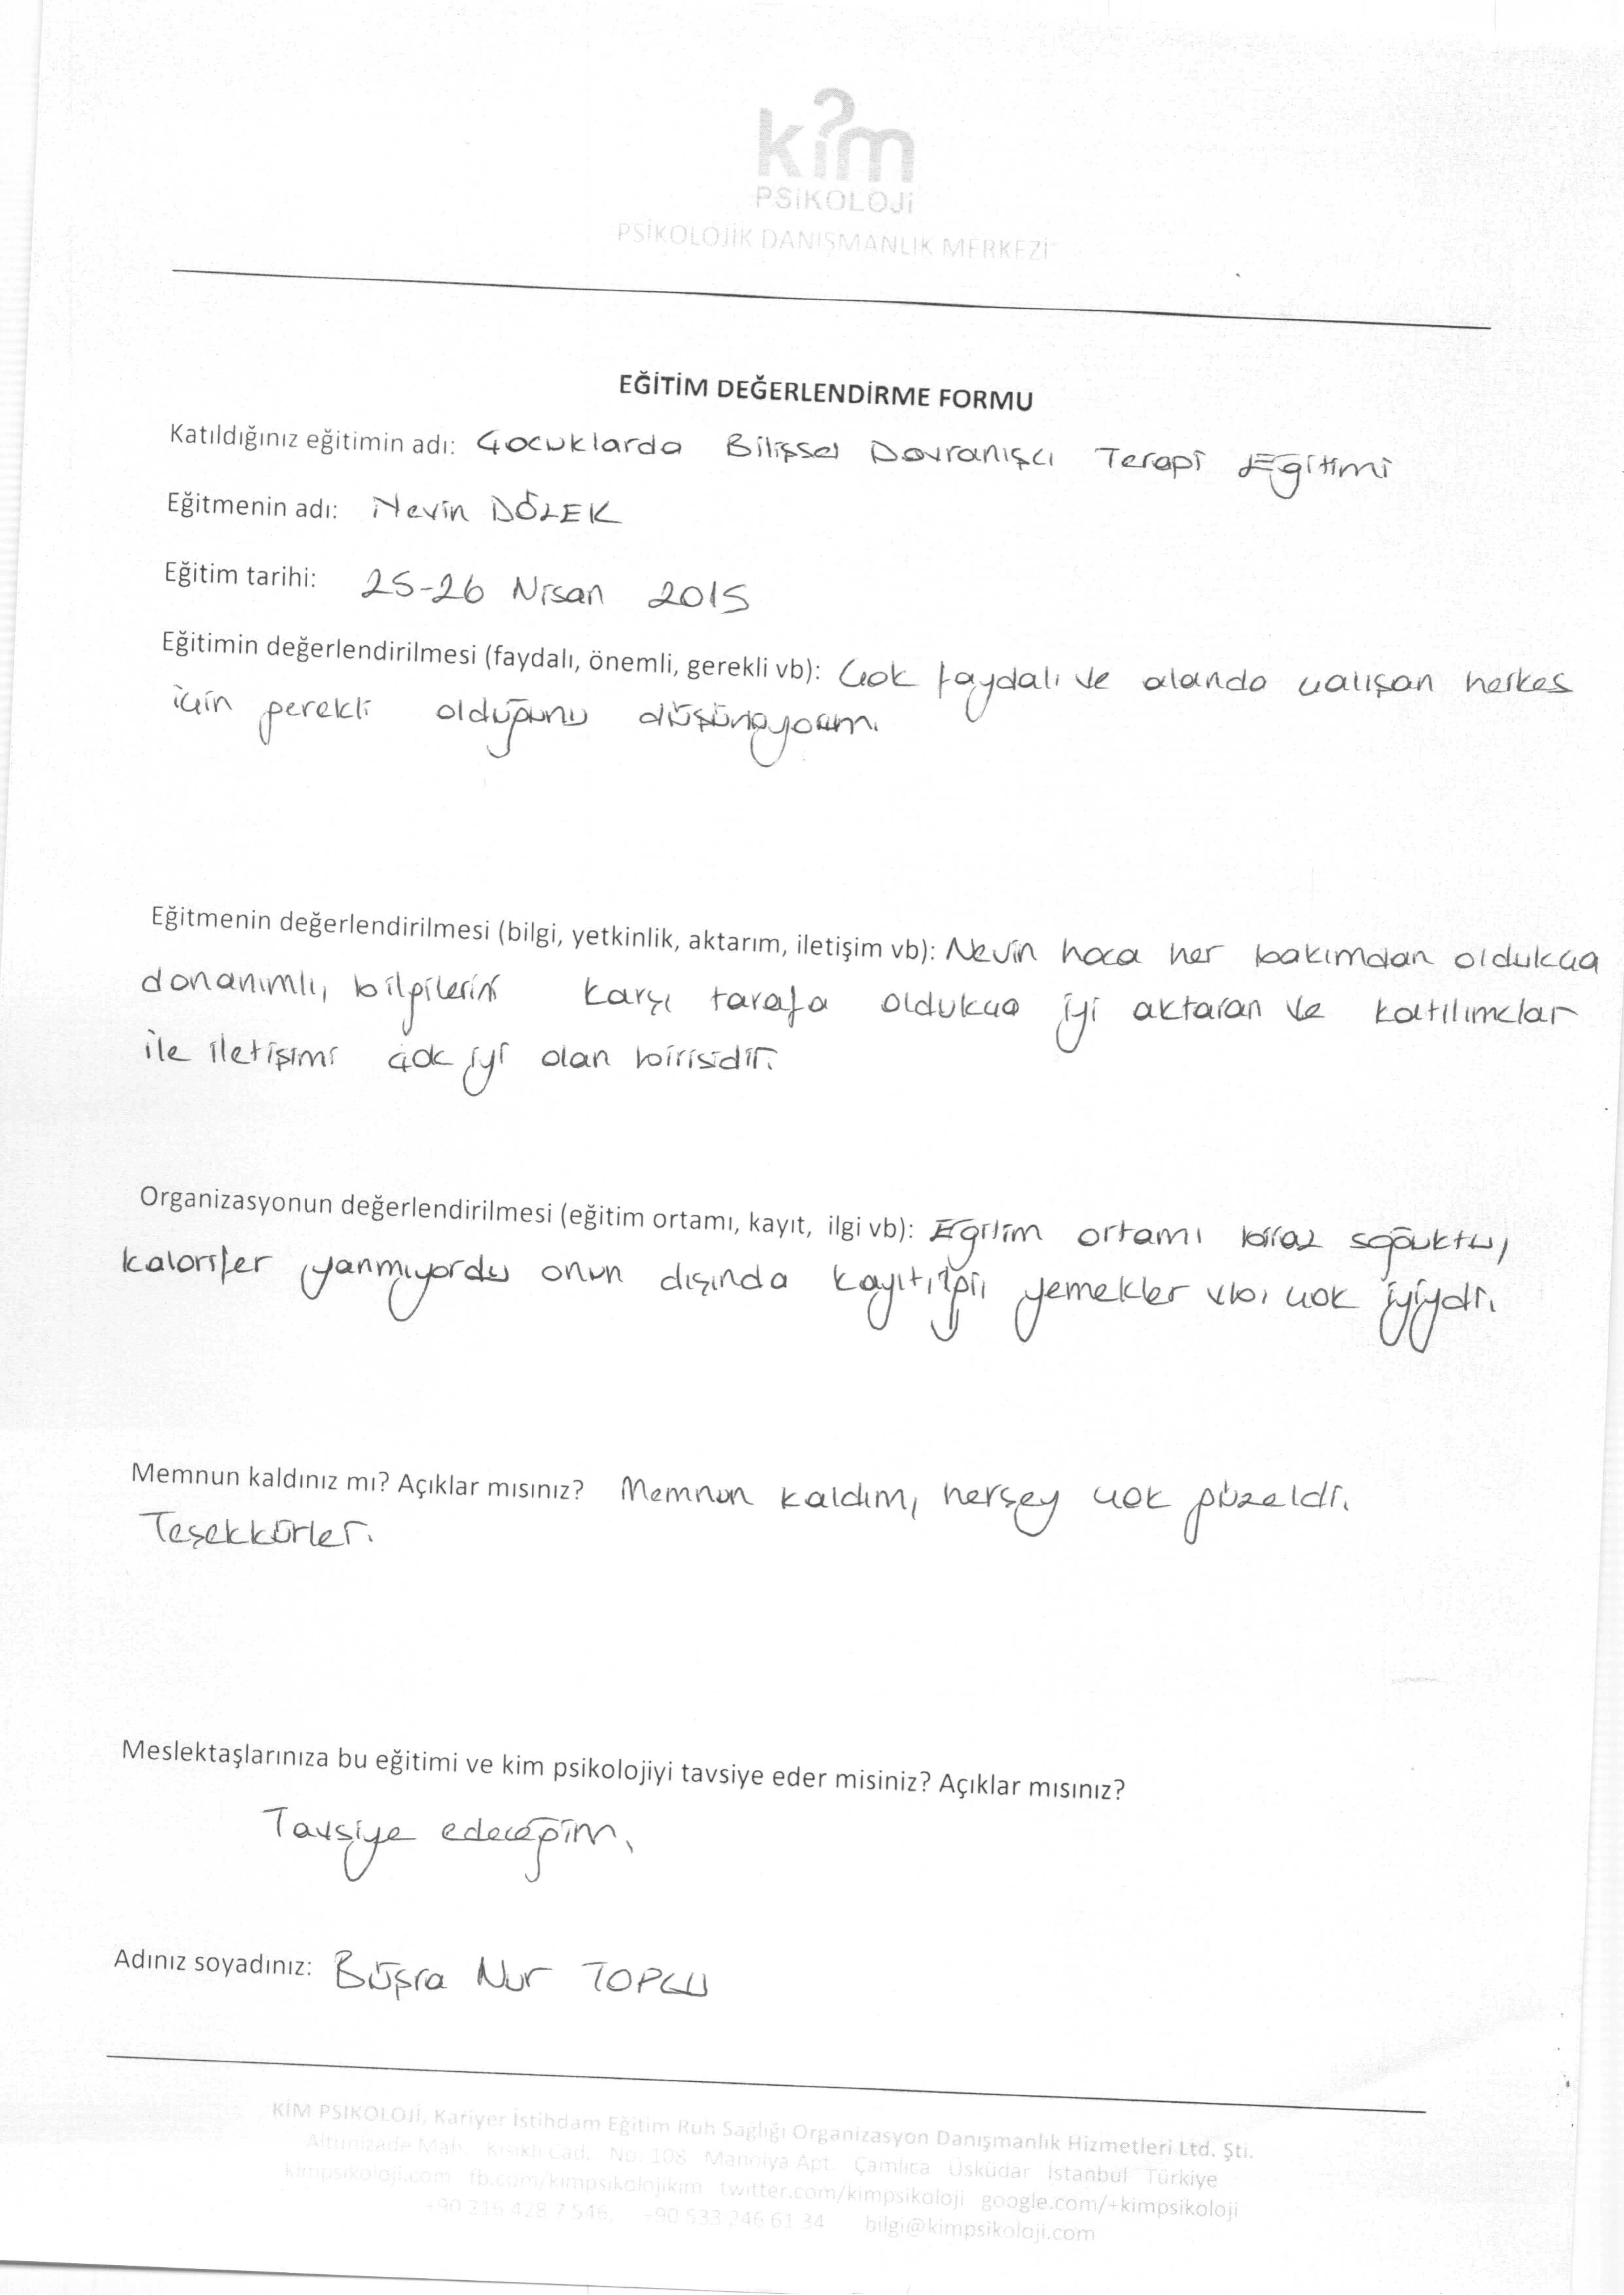 kim
PSİKOLOJİ
PSİKOLOJİK DANIŞMANLIK MERKEZİ
EĞİTİM DEĞERLENDİRME FORMU
Katıldığınız eğitimin adı: Çocuklarda Bilişsel Davranışçı Terapi Eğitimi
Eğitmenin adı: Nevin DÖLEK
Eğitim tarihi: 25-26 Nisan 2015
Eğitimin değerlendirilmesi (faydalı, önemli, gerekli vb): Çok faydalı ve alanda çalışan herkes
için gerekli olduğunu düşünüyorum.
Eğitmenin değerlendirilmesi (bilgi, yetkinlik, aktarım, iletişim vb): Nevin hoca her bakımdan oldukça
donanımlı, bilgilerini karşı tarafa oldukça iyi aktaran ve katılımclar
ile iletişimi çok iyi olan birisidir.
Organizasyonun değerlendirilmesi (eğitim ortamı, kayıt, ilgi vb): Eğitim ortamı biraz soğuktu,
kalorifer yanmıyordu onun dışında kayıt, ilgi, yemekler vb. çok iyiydi.
Memnun kaldınız mı? Açıklar mısınız? Memnun kaldım, herşey çok güzeldi.
Teşekkürler.
Meslektaşlarınıza bu eğitimi ve kim psikolojiyi tavsiye eder misiniz? Açıklar mısınız?
Tavsiye edeceğim.
Adınız soyadınız: Büşra Nur TOPÇU
KİM PSİKOLOJİ, Kariyer İstihdam Eğitim Ruh Sağlığı Organizasyon Danışmanlık Hizmetleri Ltd. Şti.
Altunizade Mah. Kısıklı Cad. No: 108 Manolya Apt. Çamlıca Üsküdar İstanbul Türkiye
kimpsikoloji.com fb.com/kimpsikolojikim twitter.com/kimpsikoloji google.com/+kimpsikoloji
+90 216 428 7 546, +90 533 246 61 34 bilgi@kimpsikoloji.com